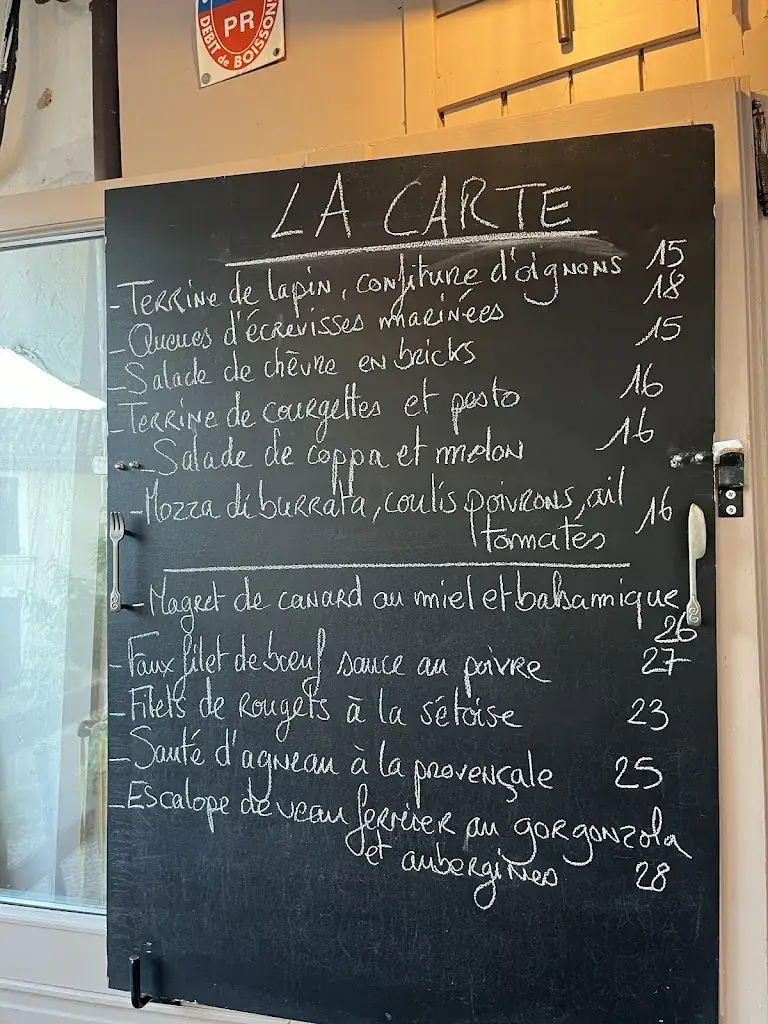 PR
DEBIT de BOISSONS
LA CARTE
- Terrine de lapin, confiture d'oignons 15
- Queues d'écrevisses marinées 18
- Salade de chèvre en bricks 15
- Terrine de courgettes et pesto 16
- Salade de coppa et melon 16
- Mozza di burrata, coulis poivrons, ail
tomates 16
- Magret de canard au miel et balsamique
26
- Faux filet de bœuf sauce au poivre 27
- Filets de Rougets à la sétoise 23
- Sauté d'agneau à la provençale 25
- Escalope de veau fermier au gorgonzola
et aubergines 28